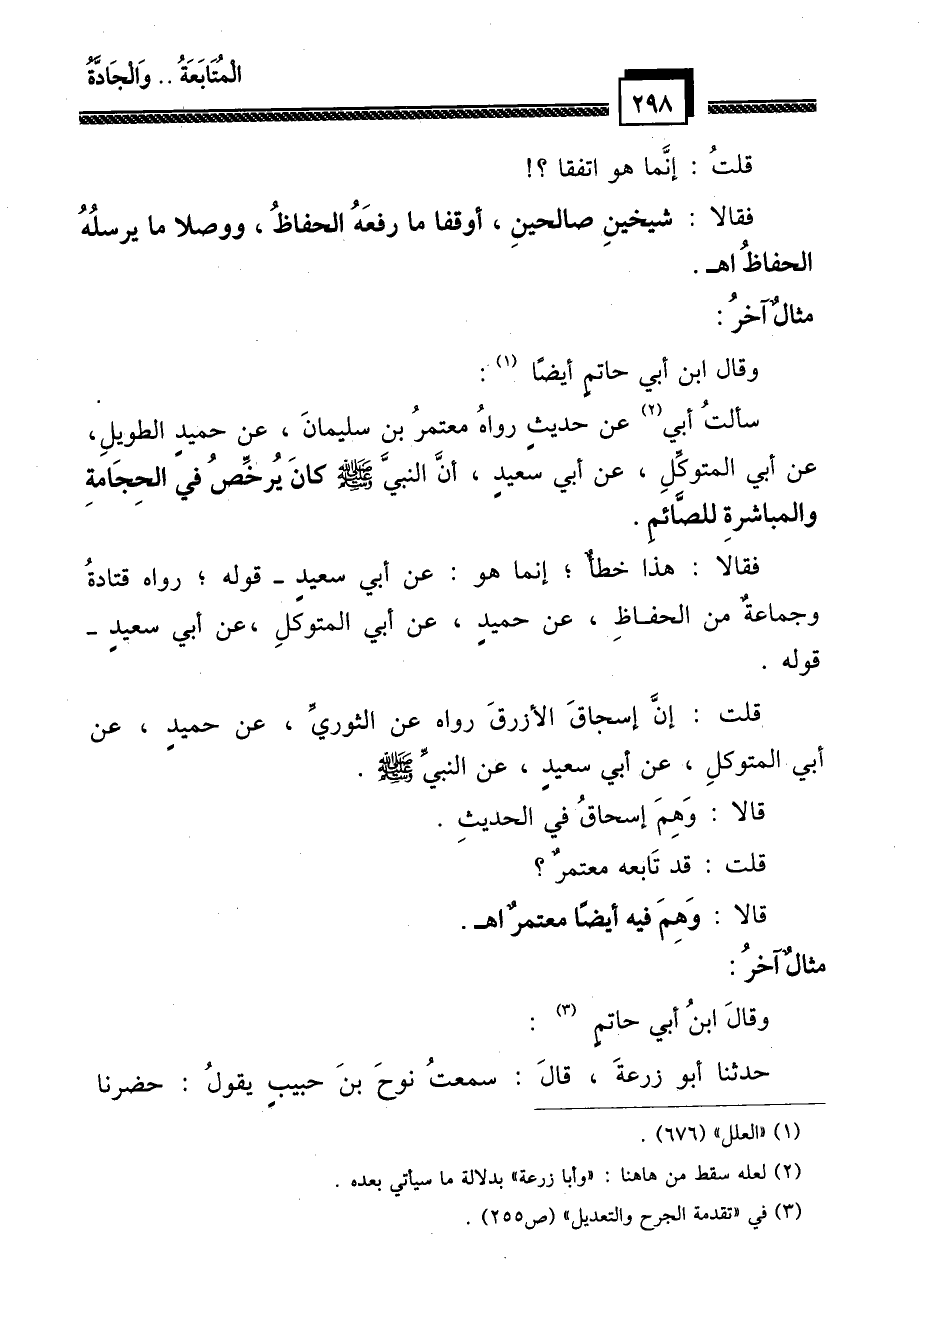 الْمُتَابَعَةُ .. وَالْجَادَّةُ
٢٩٨
قلتُ : إنَّما هو اتفقا ؟!
فقالا : شيخينِ صالحينِ ، أوقفا ما رفعَهُ الحفاظُ ، ووصلا ما يرسلُهُ
الحفاظُ اهـ .
مثالٌ آخرُ :
وقال ابن أبي حاتمٍ أيضًا (١) :
سألتُ أبي(٢) عن حديثٍ رواهُ معتمرُ بن سليمانَ ، عن حميدٍ الطويلِ،
عن أبي المتوكِّلِ ، عن أبي سعيدٍ ، أنَّ النبيَّ ﷺ كانَ يُرخِّصُ في الحِجَامةِ
والمباشرةِ للصَّائمِ .
فقالا : هذا خطأٌ ؛ إنما هو : عن أبي سعيدٍ ـ قوله ؛ رواه قتادةُ
وجماعةٌ من الحفـاظِ ، عن حميدٍ ، عن أبي المتوكلِ ،عن أبي سعيدٍ ـ
قوله .
قلت : إنَّ إسحاقَ الأزرقَ رواه عن الثوريِّ ، عن حميدٍ ، عن
أبي المتوكلِ ، عن أبي سعيدٍ ، عن النبيِّ ﷺ .
قالا : وَهِمَ إسحاقُ في الحديثِ .
قلت : قد تَابعه معتمرٌ ؟
قالا : وَهِمَ فيه أيضًا معتمرٌ اهـ .
مثالٌ آخرُ :
وقالَ ابنُ أبي حاتمٍ (٣) :
حدثنا أبو زرعةَ ، قالَ : سمعتُ نوحَ بنَ حبيبٍ يقولُ : حضرنا
(١) «العلل» (٦٧٦) .
(٢) لعله سقط من هاهنا : «وأبا زرعة» بدلالة ما سيأتي بعده .
(٣) في «تقدمة الجرح والتعديل» (ص٢٥٥) .